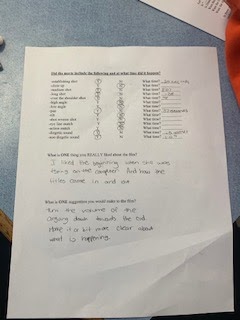 Did the movie include the following and at what time did it happen?
-establishing shot Y N What time?
-close up Y N What time?
-medium shot Y N What time?
-long shot Y N What time?
-over the shoulder shot Y N What time?
-high angle Y N What time?
-low angle Y N What time?
-pan Y N What time?
-tilt What time?
-shot reverse shot What time?
-eye line match What time?
-action match What time?
-diegetic sound What time?
-non diegetic sound What time?
What is ONE thing you REALLY liked about the film?
I liked the beginning when she was
typing on the computer. And how the
titles come in and out
What is ONE suggestion you would make to the film?
Turn the volume of the
arguing down towards the end.
Make it a bit more clear about
what is happening.